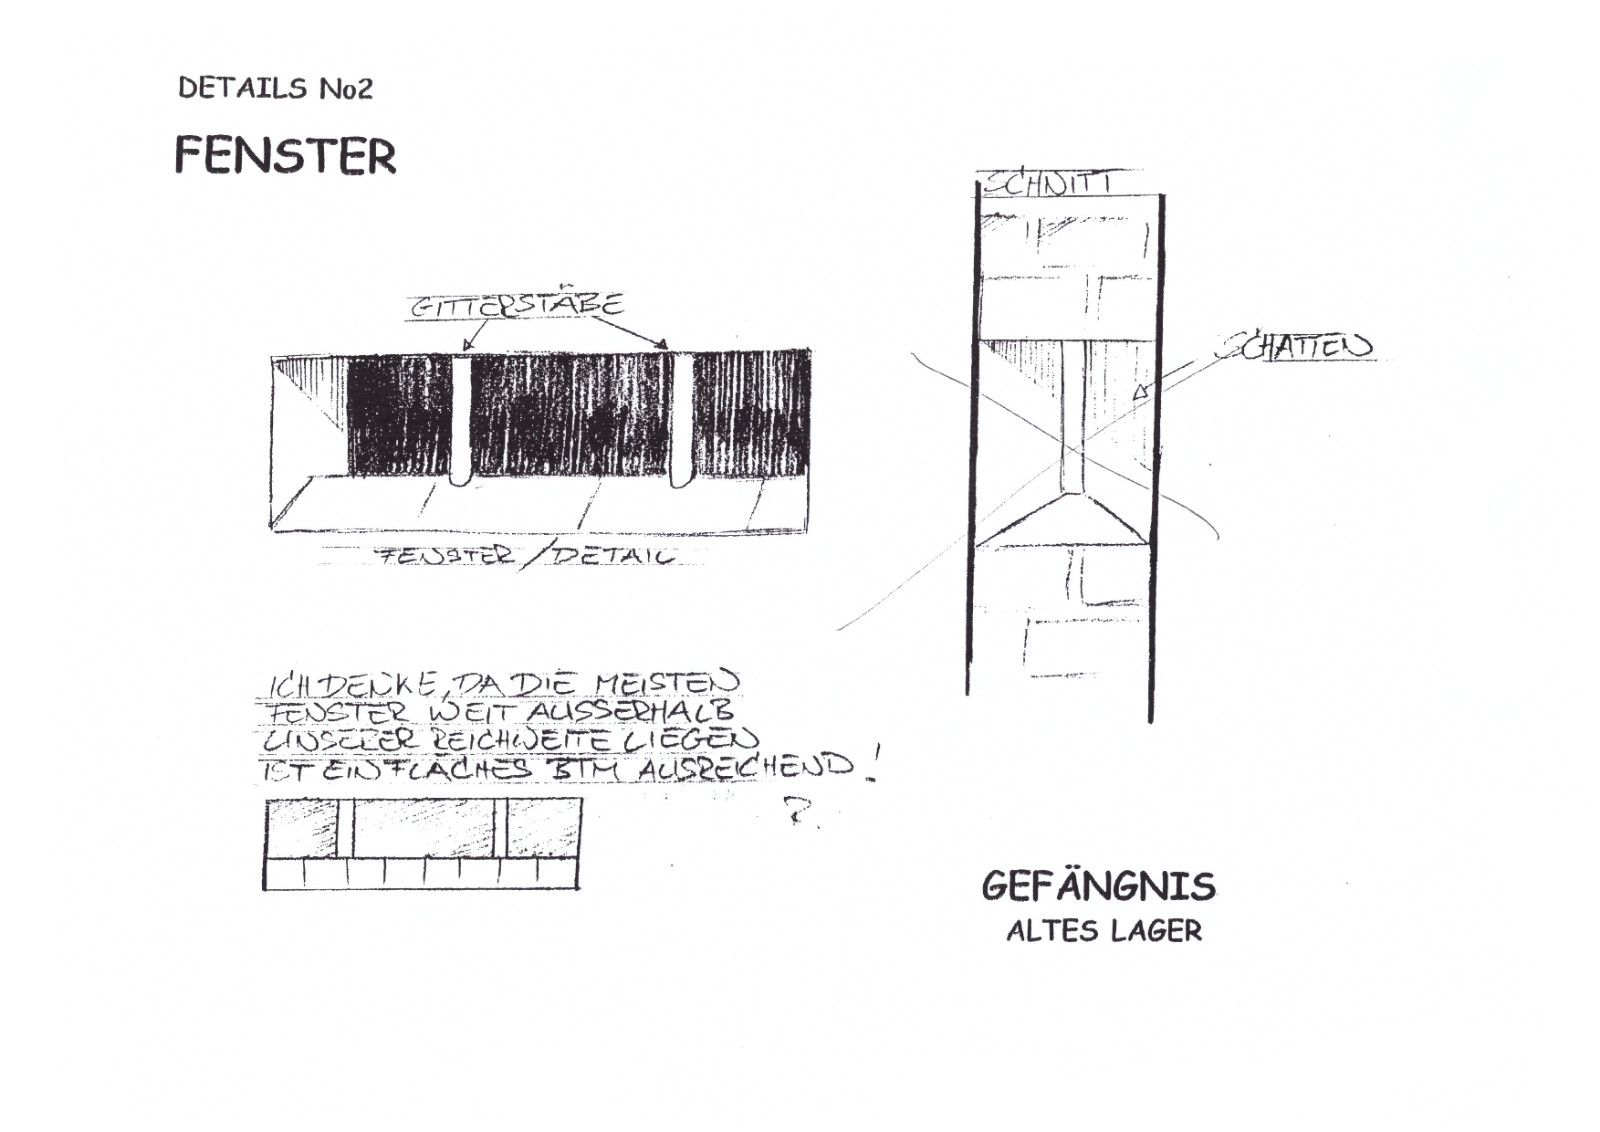 DETAILS No2
FENSTER
SCHNITT
GITTERSTÄBE
SCHATTEN
FENSTER/DETAIL
ICH DENKE, DA DIE MEISTEN
FENSTER WEIT AUSSERHALB
UNSERER REICHWEITE LIEGEN
IST EIN FLACHES BTM AUSREICHEND!
GEFÄNGNIS
ALTES LAGER